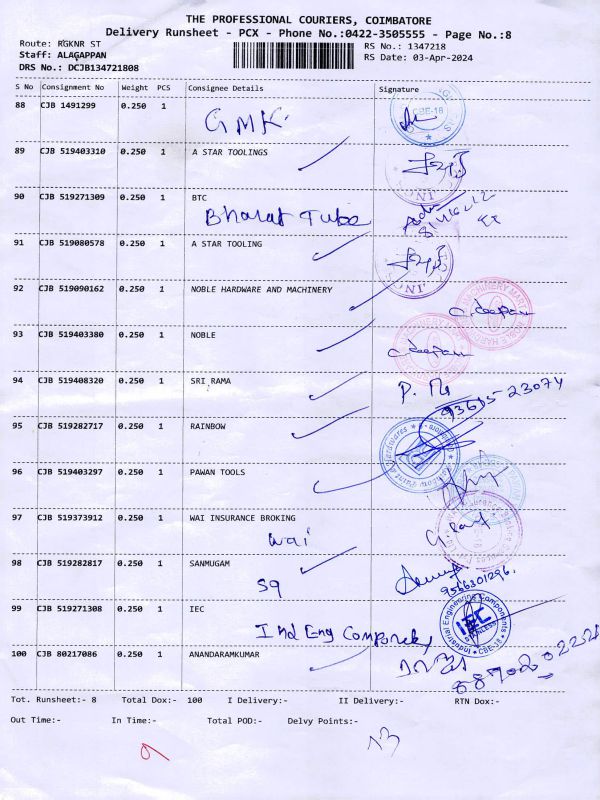 THE PROFESSIONAL COURIERS, COIMBATORE
Delivery Runsheet - PCX - Phone No.:0422-3505555 - Page No.:8
Route: RGKNR ST
RS No.: 1347218
Staff: ALAGAPPAN
RS Date: 03-Apr-2024
DRS No.: DCJB134721808
S No Consignment No Weight PCS Consignee Details Signature
88 CJB 1491299 0.250 1
GMK.
CBE-18
89 CJB 519403310 0.250 1 A STAR TOOLINGS
90 CJB 519271309 0.250 1 BTC
Bharat Tube
91 CJB 519080578 0.250 1 A STAR TOOLING
92 CJB 519090162 0.250 1 NOBLE HARDWARE AND MACHINERY
C. deepan
93 CJB 519403380 0.250 1 NOBLE
C. deepan
94 CJB 519408320 0.250 1 SRI RAMA
93615-23074
95 CJB 519282717 0.250 1 RAINBOW
96 CJB 519403297 0.250 1 PAWAN TOOLS
97 CJB 519373912 0.250 1 WAI INSURANCE BROKING
wai
98 CJB 519282817 0.250 1 SANMUGAM
sq
9566301296.
99 CJB 519271308 0.250 1 IEC
Ind Eng
Industrial Engineering Components
IEC
CBE-18
100 CJB 80217086 0.250 1 ANANDARAMKUMAR
Tot. Runsheet:- 8 Total Dox:- 100 I Delivery:- II Delivery:- RTN Dox:-
Out Time:- In Time:- Total POD:- Delvy Points:-
9